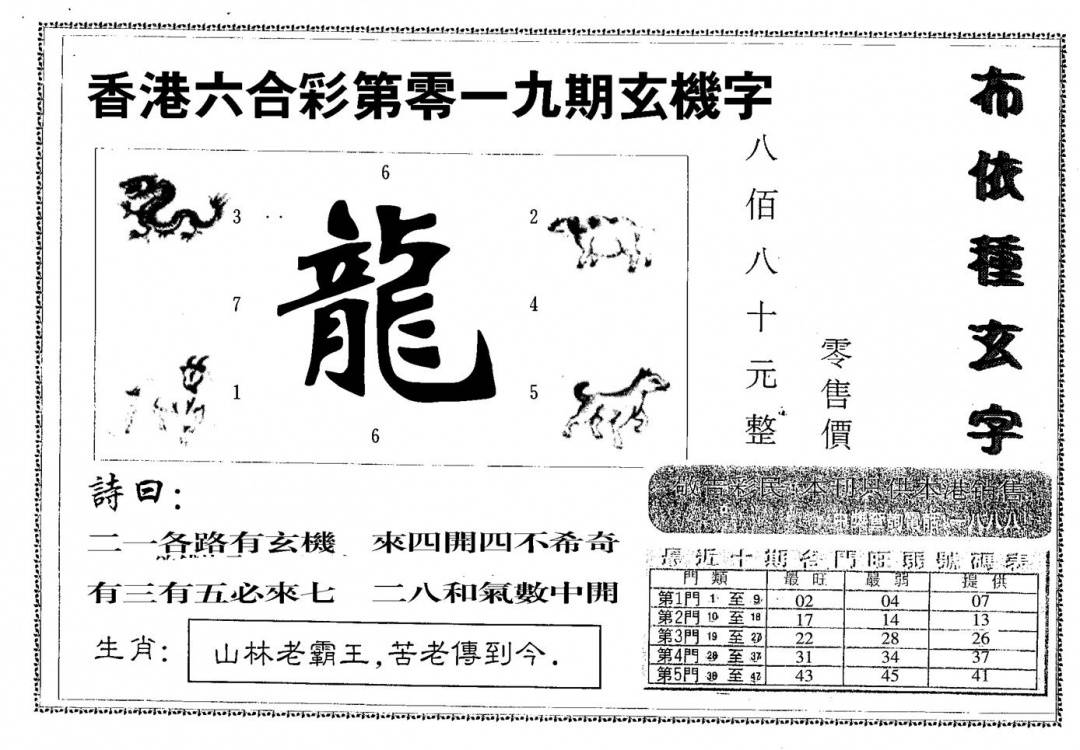 香港六合彩第零一九期玄機字
布依種玄字
八佰八十元整
零售價
6
3
2
龍
7
4
1
5
6
詩曰：
二一各路有玄機 來四開四不希奇
有三有五必來七 二八和氣數中開
生肖： 山林老霸王,苦老傳到今.
敬告彩民:本刊只供本港銷售
最近十期各門旺弱號碼表
門類 最旺 最弱 提供
第1門 1 至 9 02 04 07
第2門 10 至 18 17 14 13
第3門 19 至 27 22 28 26
第4門 28 至 37 31 34 37
第5門 38 至 47 43 45 41